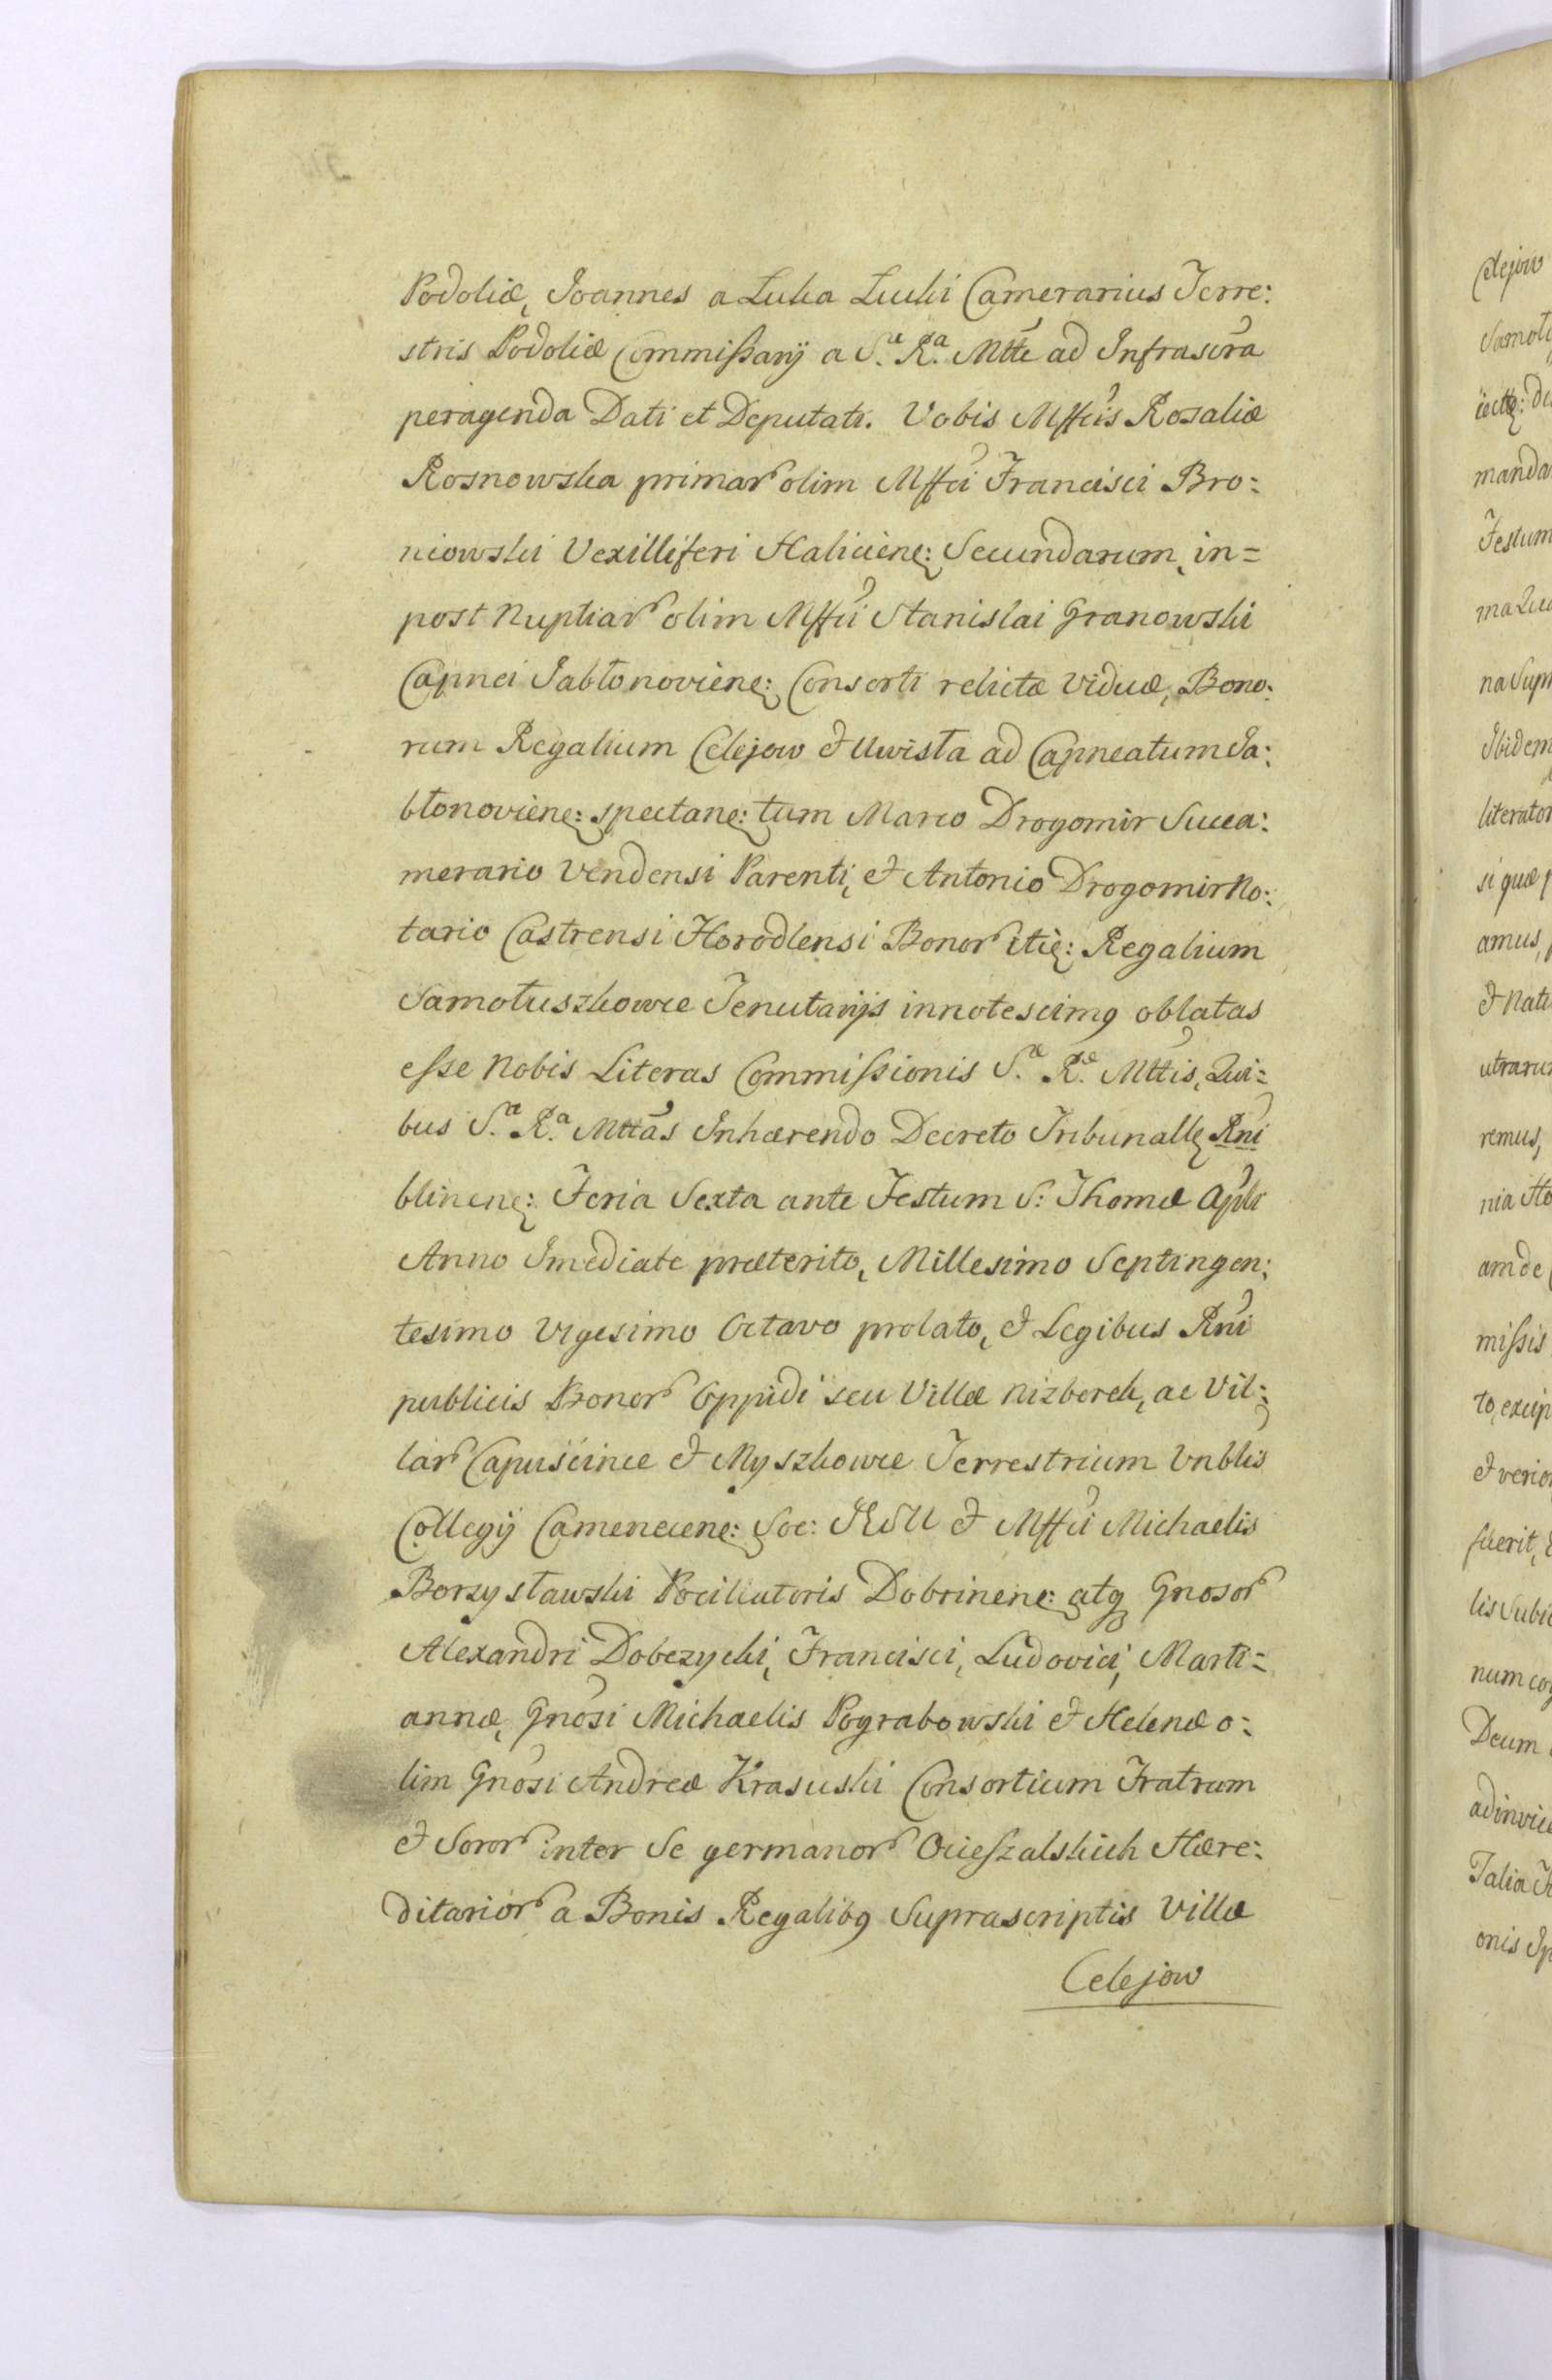 Podoliæ, Joannes a Luka Lucki Camerarius Terre:
stris Podoliæ Commissarÿ a S.ͣ R.ͣ Mtte ad Infrascra
peragenda Dati et Deputati. Vobis Mffcis Rosaliæ
Rosnowska primar olim Mffci Francisci Bro:
niowski Vexilliferi Haliciens: Secundarum, in=
post Nuptiar olim Mffci Stanislai Granowski
Capnei Jabłonoviens: Consorti relictæ Viduæ, Bono:
rum Regalium Celejow et Uwisła ad Capneatum Ja:
błonoviens: spectans: tum Marco Drogomir Succa:
merario Vendensi Parenti, et Antonio Drogomir No:
tario Castrensi Horodlensi Bonor itid: Regalium
Samołuszkowce Tenutarÿs innotescimq oblatas
esse Nobis Literas Commissionis S.ͤ R.ͤ Mttis, Qui=
bus S.ͣ R.ͣ Mttas Inhærendo Decreto Tribunalle Rni
blinens: Feria Sexta ante Festum S: Thomæ Apli
Anno Imediate præterito, Millesimo Septingen:
tesimo Vigesimo Octavo prolato, et Legibus Rni
publicis Bonor Oppidi seu Villæ Nizborek, ac Vil:
lar Capuścince et Myszkowce Terrestrium Vnblis
Collegÿ Camenecens: Soc: JESU et Mffci Michaelis
Borzysławski Pocillatoris Dobrinens: atq Gnosor
Alexandri Dobczycki, Francisci, Ludovici, Mari=
annæ, Gnosi Michaelis Pograbowski et Helenæ o:
lim Gnosi Andreæ Krasuski Consortium Fratrum
et Soror inter Se germanor Ocieszalskich Hære:
ditarior a Bonis Regalibq Suprascriptis Villæ
Celejow
Celejow
mandа
Festum
Ibidem
literator
si quæ
amus,
remus,
missis
fuerit,
Deum
Talia